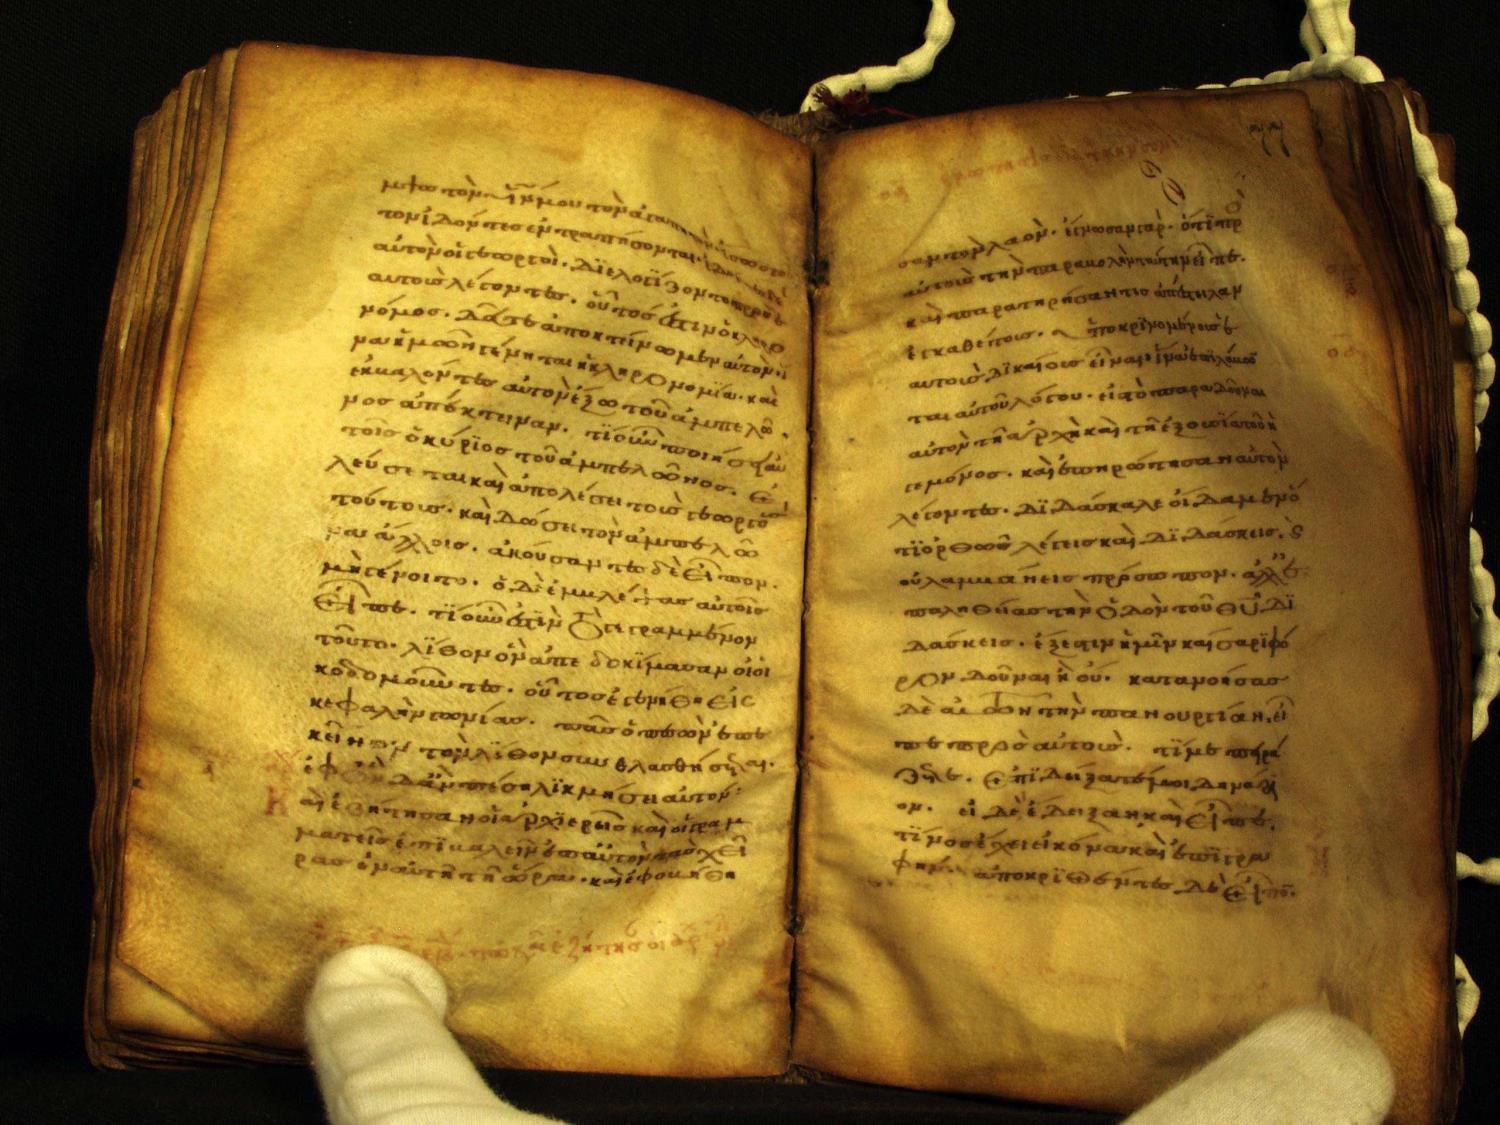 μψω τὸν υἱόν μου τὸν ἀγαπητὸν ἴσως τοῦ
τον ἰδόντες ἐντραπήσονται. ἰδόντες δὲ
αὐτὸν οἱ γεωργοὶ. διελογίζοντο πρὸς ἑ
αυτοὺς λέγοντες. οὗτός ἐστιν ὁ κληρο
νόμος. δεῦτε ἀποκτείνωμεν αὐτὸν ἵ
να ἡμῶν γένηται ἡ κληρονομία. καὶ
ἐκβαλόντες αὐτὸν ἔξω τοῦ ἀμπελῶ
νος ἀπέκτειναν. τί οὖν ποιήσει αὐ
τοῖς ὁ κύριος τοῦ ἀμπελῶνος. ἐ
λεύσεται καὶ ἀπολέσει τοὺς γεωργοὺς
τούτους. καὶ δώσει τὸν ἀμπελῶ
να ἄλλοις. ἀκούσαντες δὲ εἶπον.
μὴ γένοιτο. ὁ δὲ ἐμβλέψας αὐτοῖς
εἶπε. τί οὖν ἐστιν τὸ γεγραμμένον
τοῦτο. λίθον ὃν ἀπεδοκίμασαν οἱ οἰ
κοδομοῦντες. οὗτος ἐγενήθη εἰς
κεφαλὴν γωνίας. πᾶς ὁ πεσὼν ἐπ
ἐκεῖνον τὸν λίθον συνθλασθήσεται.
ἐφ ὃν δ ἂν πέσῃ λικμήσει αὐτόν
Καὶ ἐζήτησαν οἱ ἀρχιερεῖς καὶ οἱ γραμ
ματεῖς ἐπιβαλεῖν ἐπ αὐτὸν τὰς χεῖ
ρας ἐν αὐτῇ τῇ ὥρᾳ. καὶ ἐφοβήθη
σαν τὸν λαόν. ἔγνωσαν γὰρ. ὅτι πρ
αὐτοὺς τὴν παραβολὴν ταύτην εἶπε.
καὶ παρατηρήσαντες ἀπέστειλαν
ἐγκαθέτους. ὑποκρινομένους ἑ
αυτοὺς δικαίους εἶναι ἵνα ἐπιλάβων
ται αὐτοῦ λόγου. εἰς τὸ παραδοῦναι
αὐτὸν τῇ ἀρχῇ καὶ τῇ ἐξουσίᾳ τοῦ ἡ
γεμόνος. καὶ ἐπηρώτησαν αὐτὸν
λέγοντες. διδάσκαλε οἴδαμεν ὅ
τι ὀρθῶς λέγεις καὶ διδάσκεις. καὶ
οὐ λαμβάνεις πρόσωπον. ἀλλ ἐ
π ἀληθείας τὴν ὁδὸν τοῦ θυ δι
δάσκεις. ἔξεστιν ἡμῖν καίσαρι φό
ρον δοῦναι ἢ οὔ. κατανοήσας
δὲ αὐτῶν τὴν πανουργίαν, εἶ
πε πρὸς αὐτούς. τί με πειρά
ζετε. ἐπιδείξατέ μοι δηνάρι
ον. οἱ δὲ ἔδειξαν καὶ εἶπε.
τίνος ἔχει εἰκόνα καὶ ἐπιγρα
φήν. ἀποκριθέντες δὲ εἶπον.